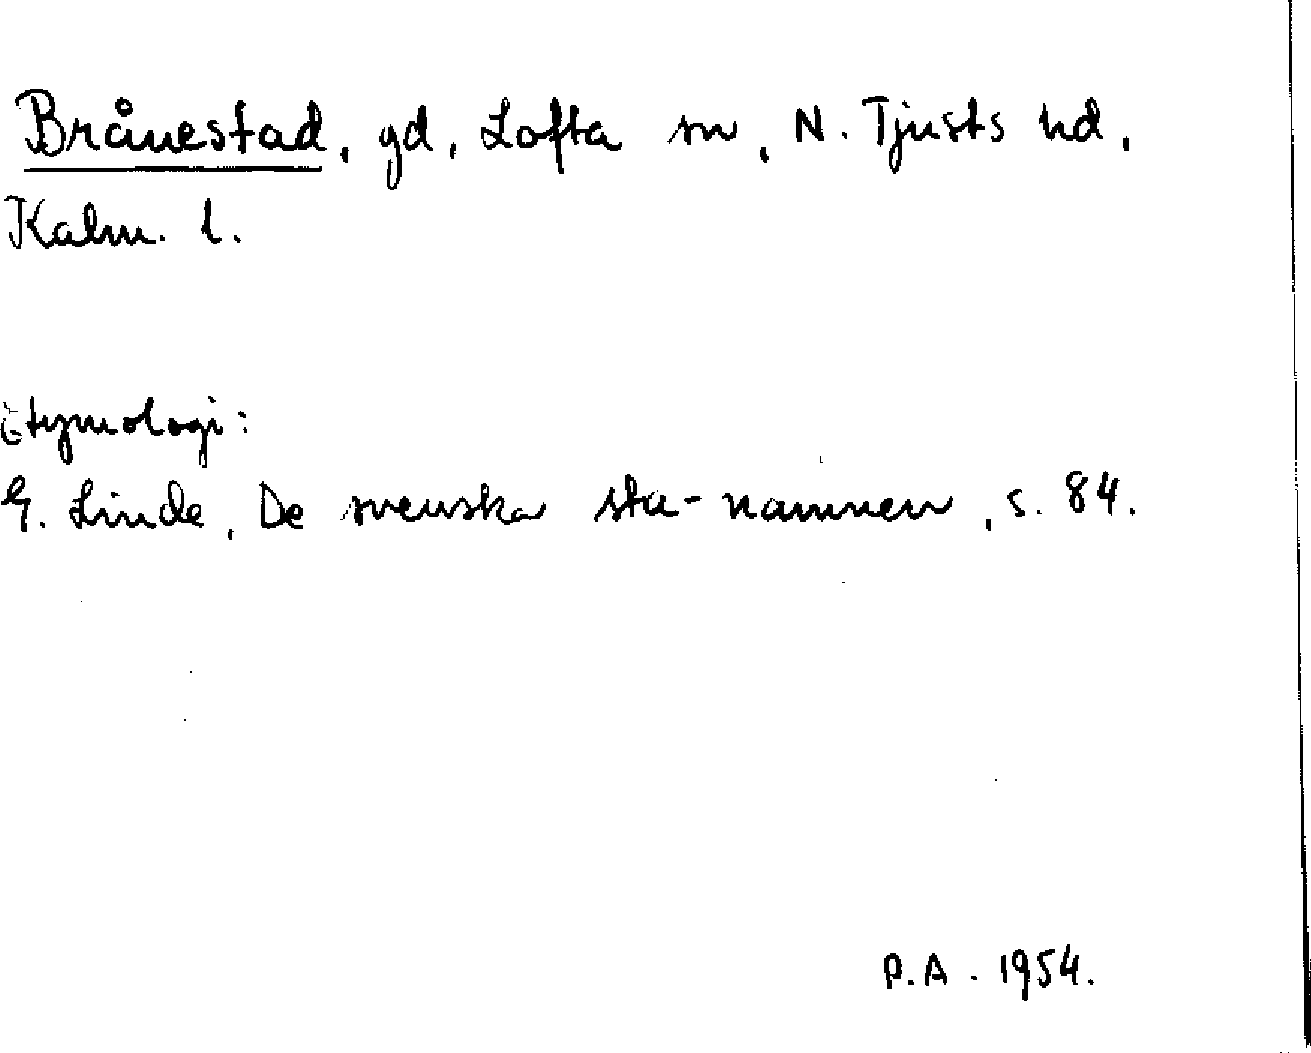 Brånestad, gd, Lofta sn, N. Tjusts hd,
Kalm. l.
Etymologi:
G. Linde, De svenska sta-namnen, s. 84.
P.A. 1954.